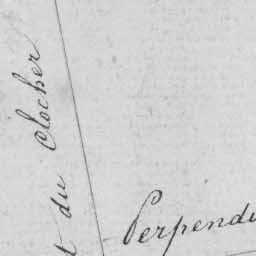 du Clocher
Perpendi